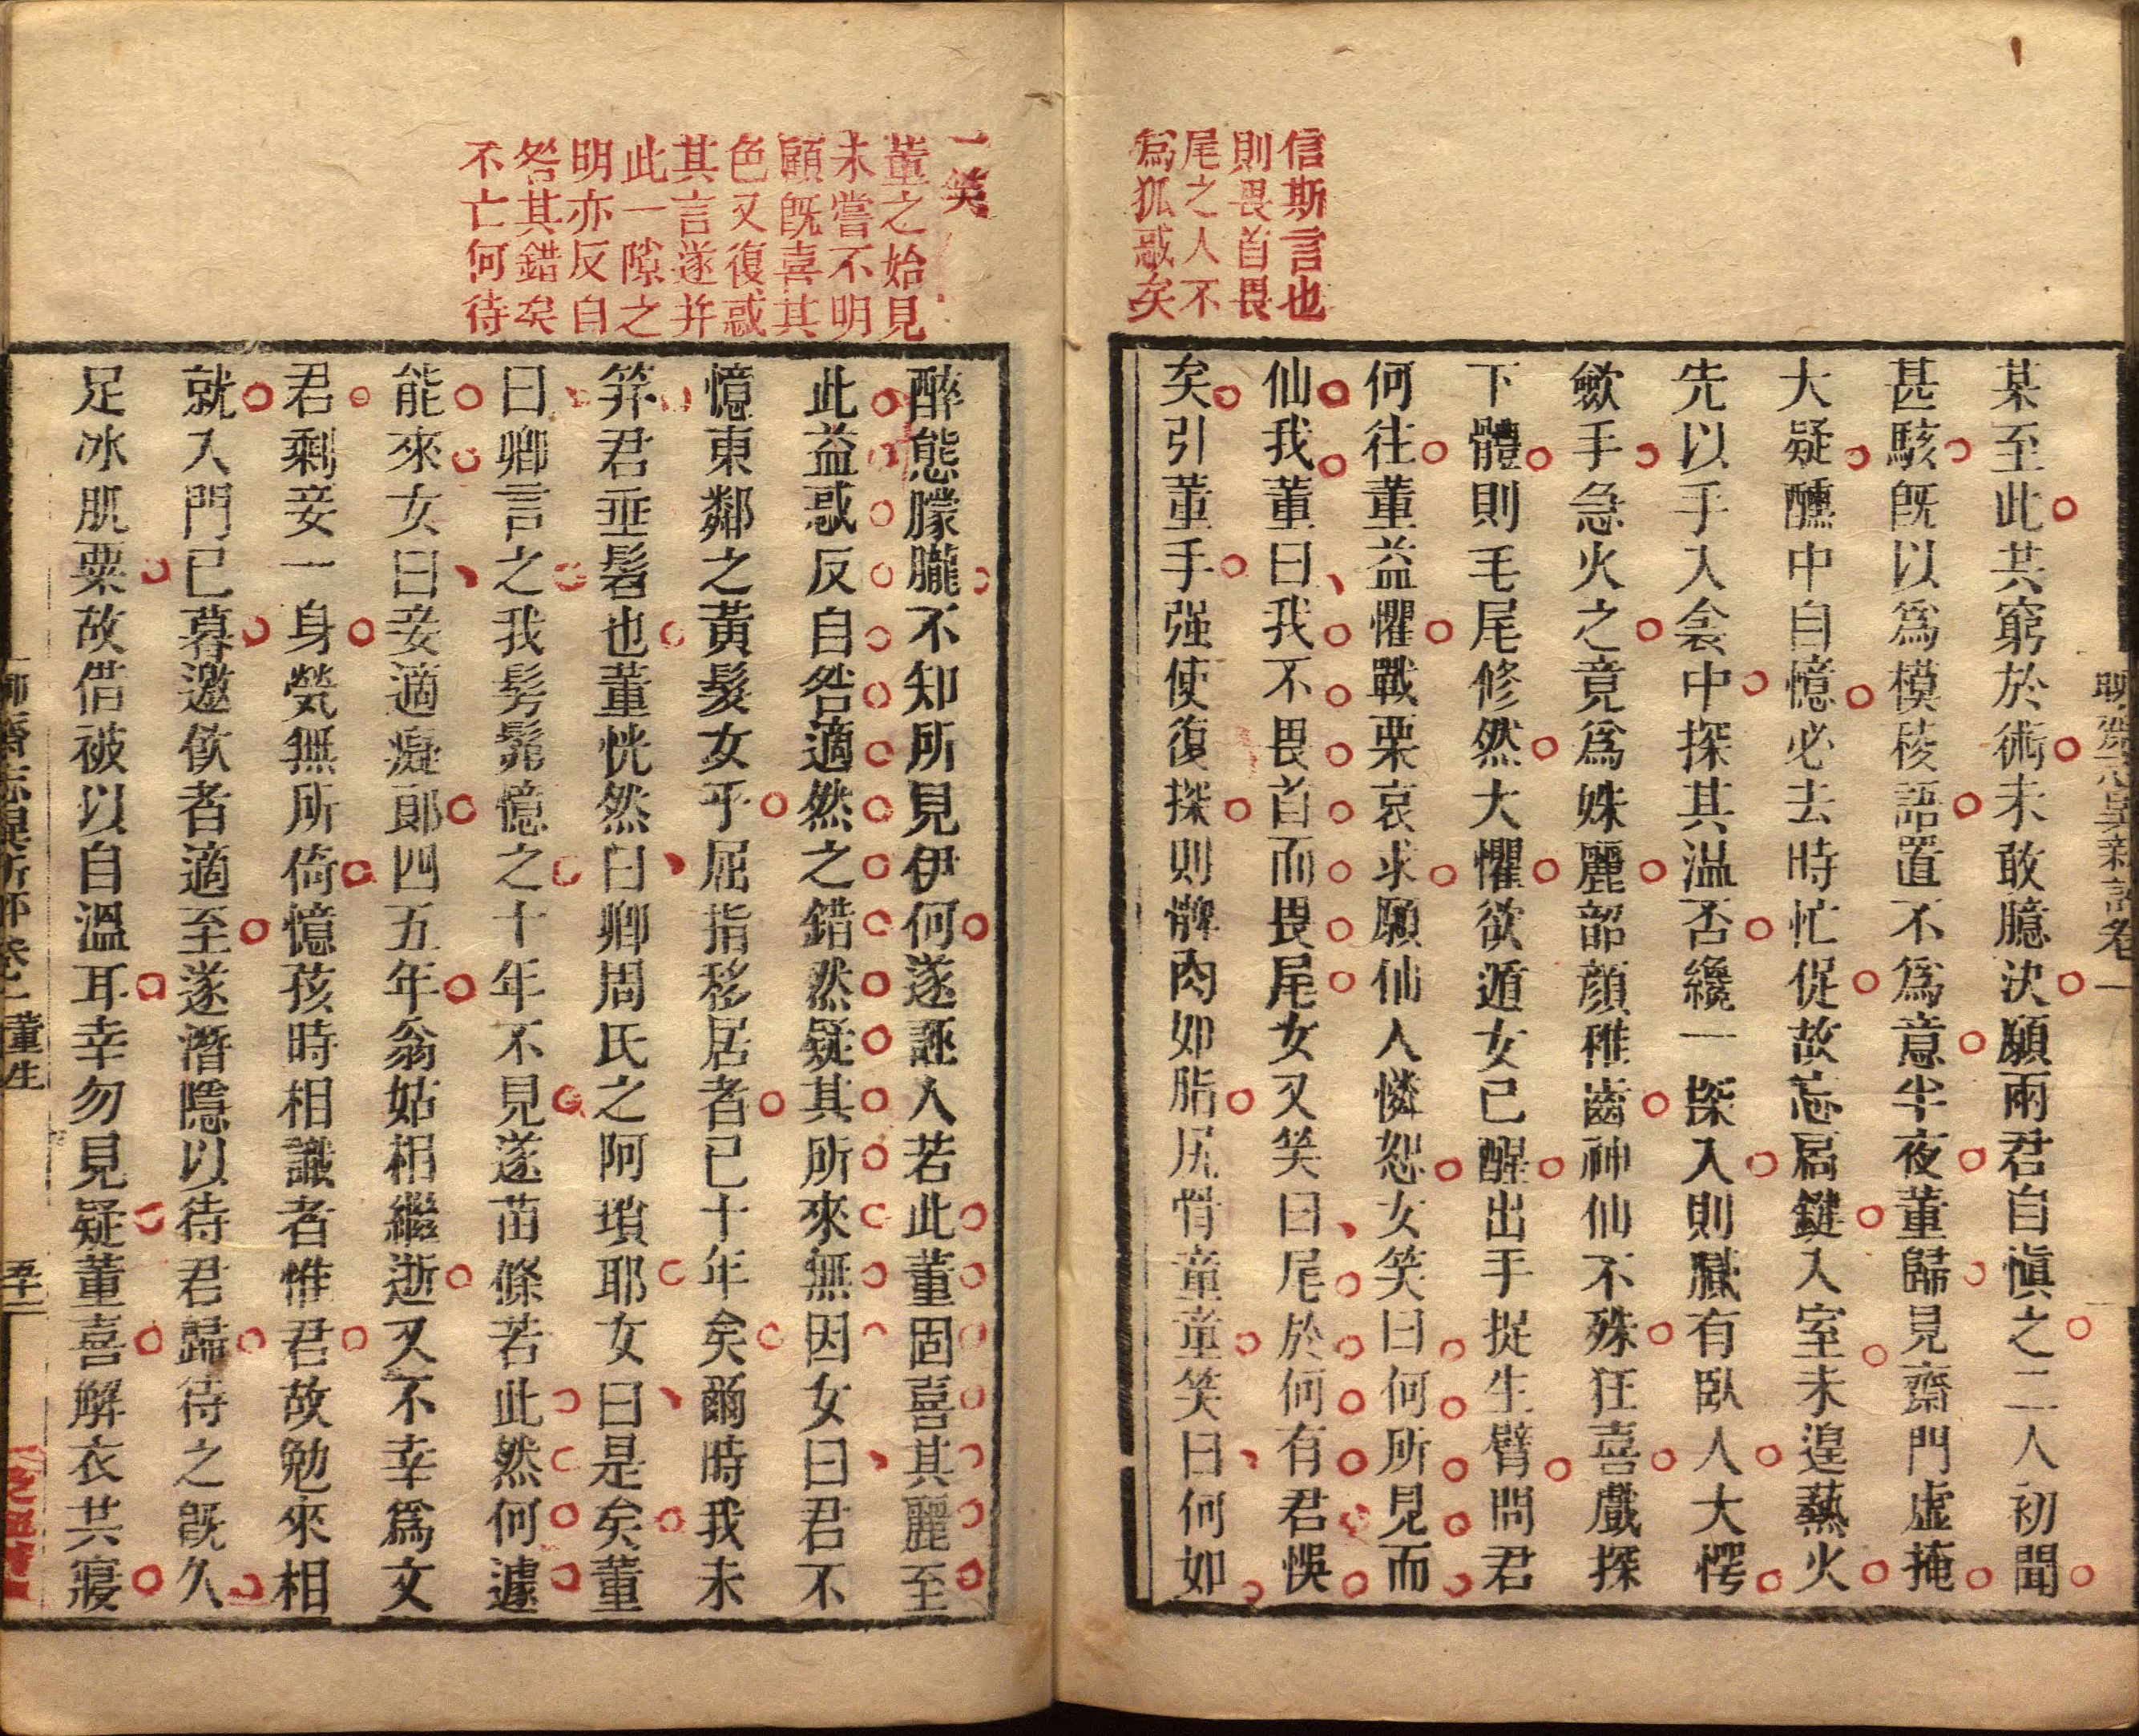 信斯言也
則畏首畏
尾之人不
爲狐惑矣
聊齋志異新評卷一
某至此共窮於術未敢臆決願兩君自慎之二人初聞
甚駭旣以爲模稜語置不爲意半夜董歸見齋門虛掩
大疑醺中自憶必去時忙促故忘扃鍵入室未遑爇火
先以手入衾中探其温否纔一探入則膩有臥人大愕
歛手急火之竟爲姝麗韶顔稚齒神仙不殊狂喜戲探
下體則毛尾修然大懼欲遁女已醒出手捉生臂問君
何往董益懼戰栗哀求願仙人憐恕女笑曰何所見而
仙我董曰我不畏首而畏尾女又笑曰尾於何有君悞
矣引董手强使復探則髀肉如脂尻骨童童笑曰何如
一笑
董之始見
未嘗不明
顧旣喜其
色又復惑
其言遂并
此一隙之
明亦反自
咎其錯矣
不亡何待
醉態朦朧不知所見伊何遂誣人若此董固喜其麗至
此益惑反自咎適然之錯然疑其所來無因女曰君不
憶東鄰之黃髮女乎屈指移居者已十年矣爾時我未
筓君垂髫也董恍然曰卿周氏之阿瑣耶女曰是矣董
曰卿言之我髣髴憶之十年不見遂苗條若此然何遽
能來女曰妾適癡郎四五年翁姑相繼逝又不幸爲文
君剩妾一身煢無所倚憶孩時相識者惟君故勉來相
就入門已暮邀飲者適至遂潛隱以待君歸待之旣久
足冰肌粟故借被以自溫耳幸勿見疑董喜解衣共寢
聊齋志異新評卷一 董生 五十三